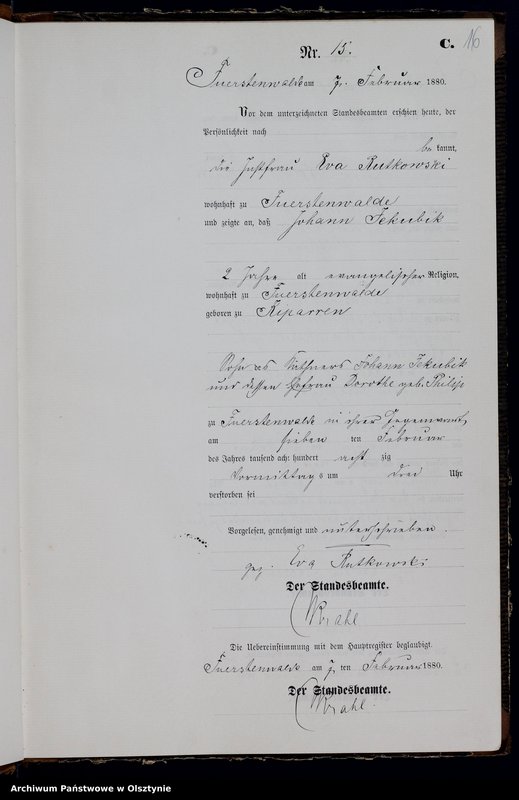 16
C.
Nr. 15.
Fuerstenwalde am 7. Februar 1880.
Vor dem unterzeichneten Standesbeamten erschien heute, der
Persönlichkeit nach
be kannt,
die Justfrau Eva Rutkowski
wohnhaft zu Fuerstenwalde
und zeigte an, daß Johann Jekubik
2 Jahre alt evangelischer Religion,
wohnhaft zu Fuerstenwalde
geboren zu Kiparren
Sohn des Käthners Johann Jekubik
und dessen Ehefrau Dorothe geb. Philip
zu Fuerstenwalde in ihrer Gegenwart,
am sieben ten Februar
des Jahres tausend acht hundert acht zig
Vormittag s um drei Uhr
verstorben sei
Vorgelesen, genehmigt und unterschrieben.
gez. Eva Rutkowski
Der Standesbeamte.
Krahl
Die Uebereinstimmung mit dem Hauptregister beglaubigt.
Fuerstenwalde am 7 ten Februar 1880.
Der Standesbeamte.
Krahl.
Archiwum Państwowe w Olsztynie